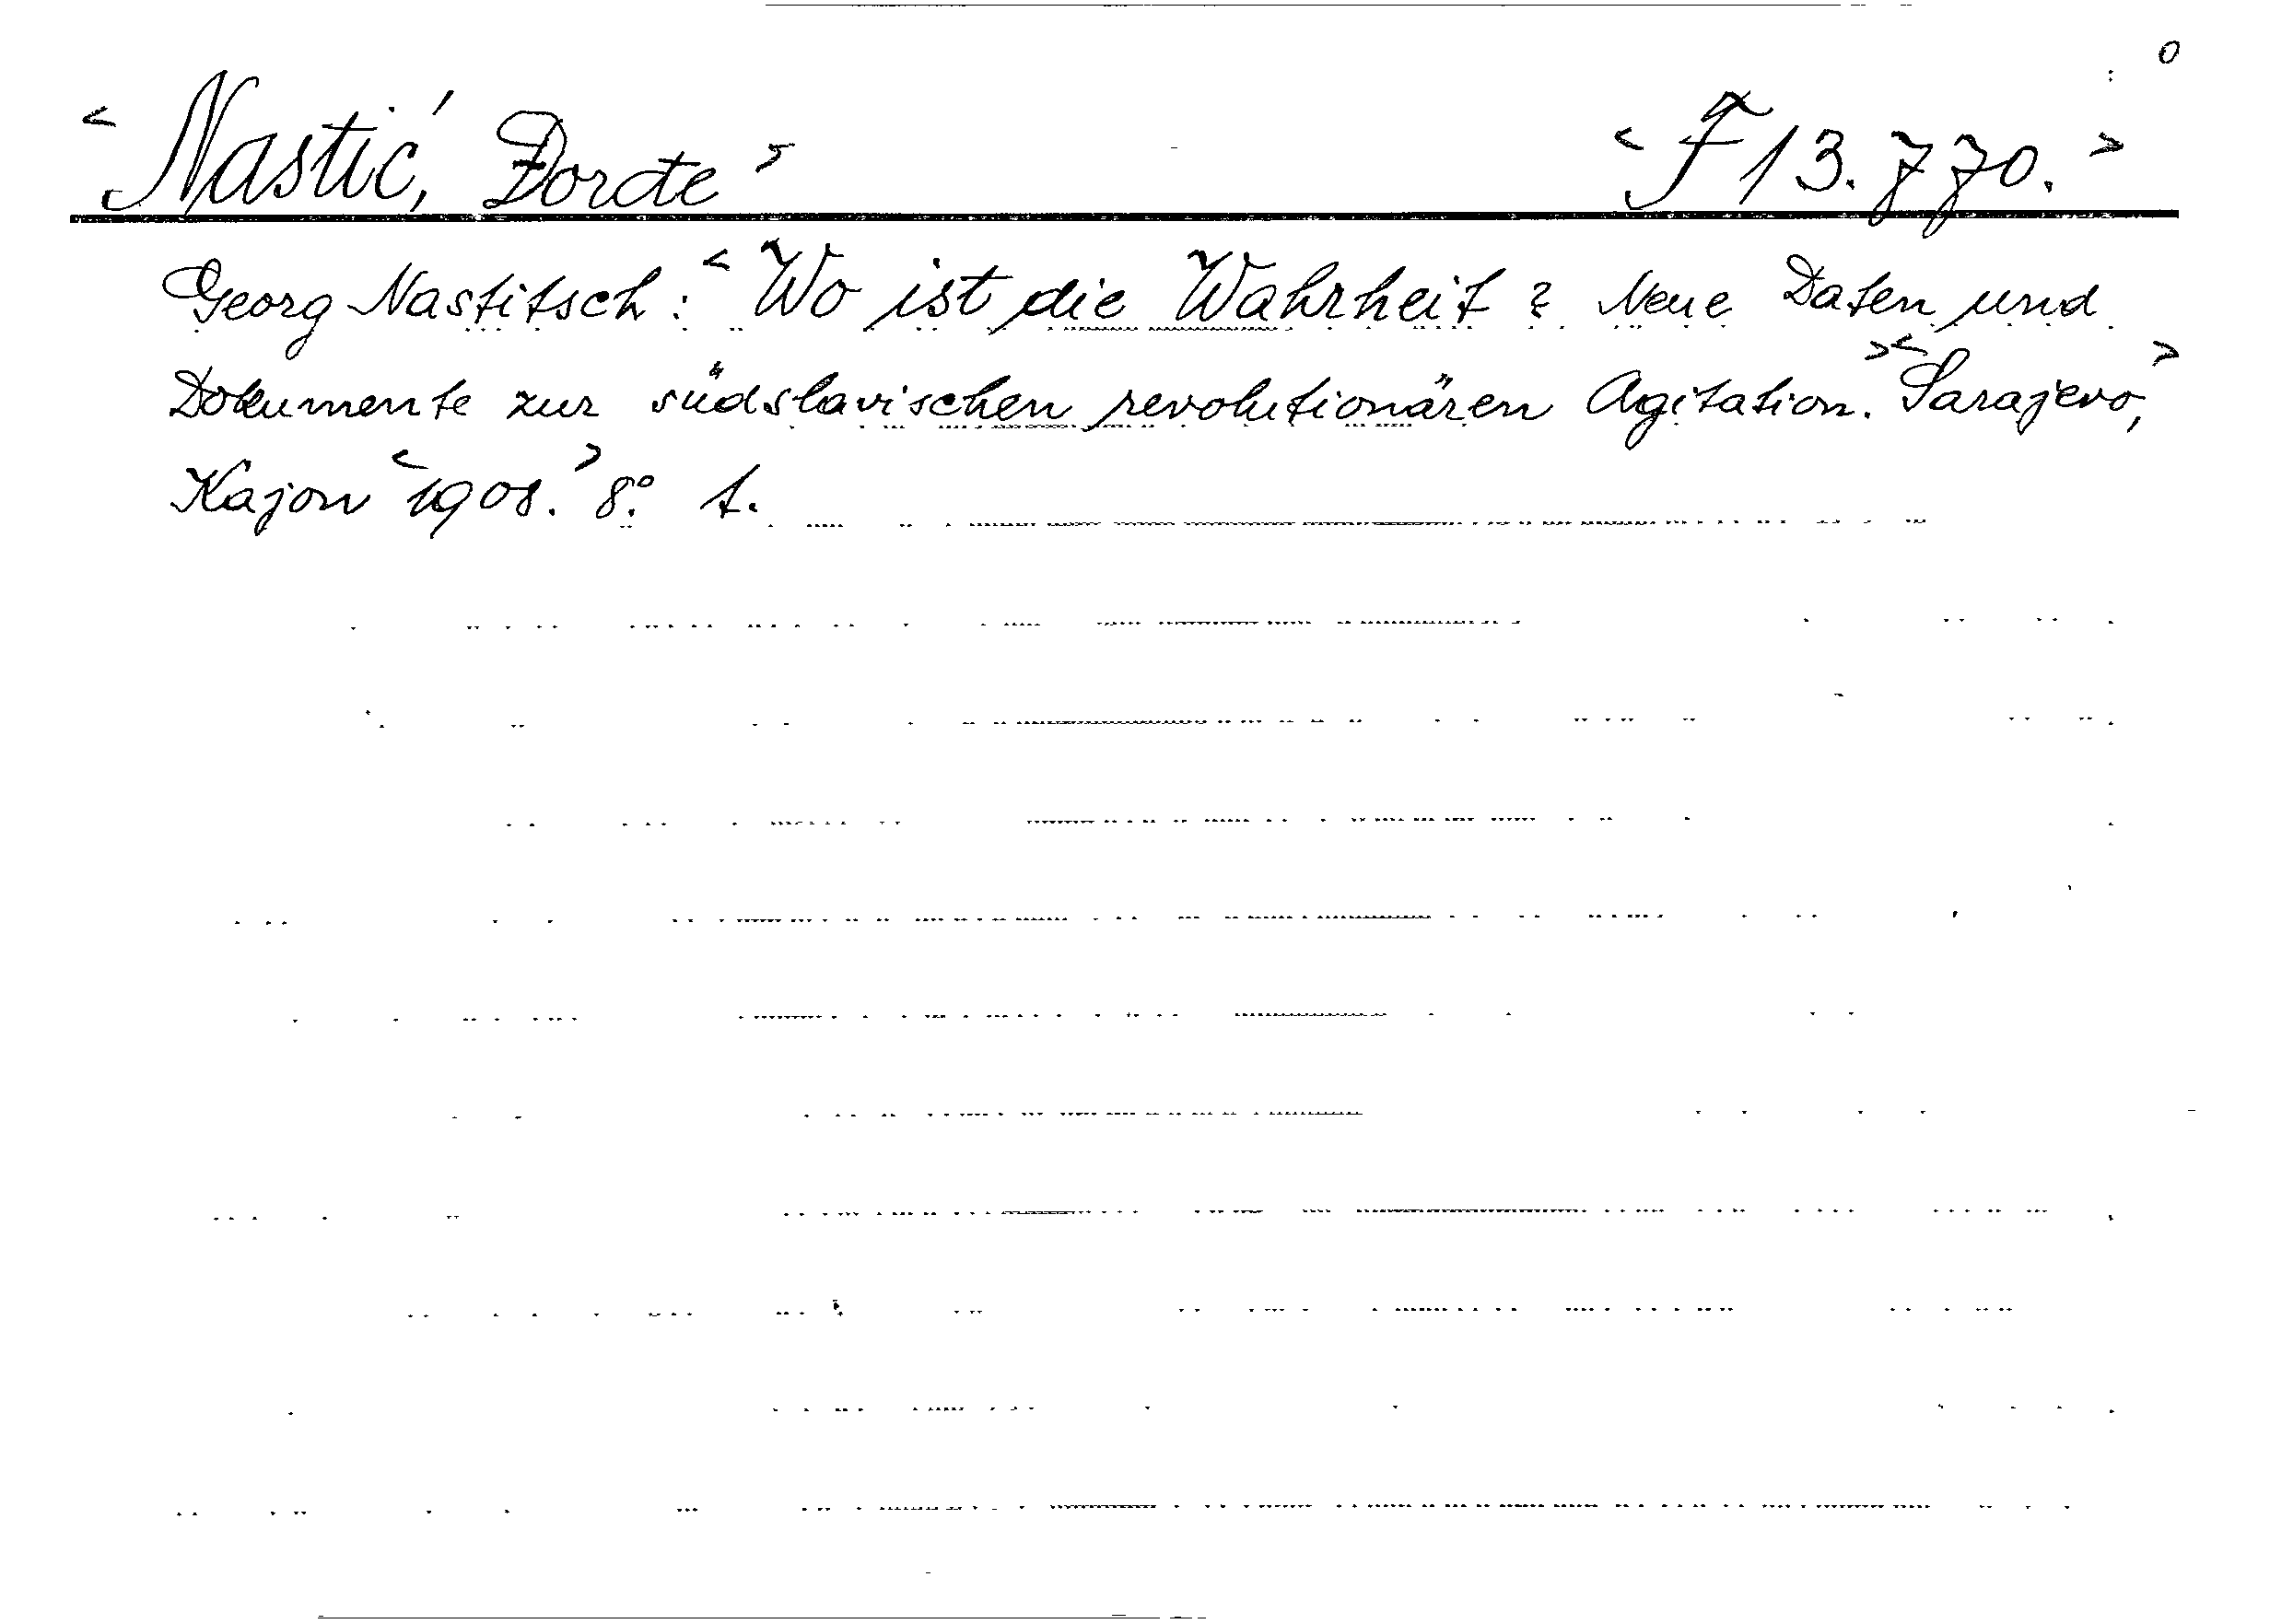 <Nastić, Đorđe> <F 13.770.>
Georg Nastitsch: <Wo ist die Wahrheit? Neue Daten und
Dokumente zur südslavischen revolutionären Agitation.> <Sarajevo,>
Kajon <1908.> 8.° 1.